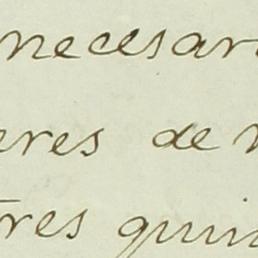 necesar
eres de
tres quin